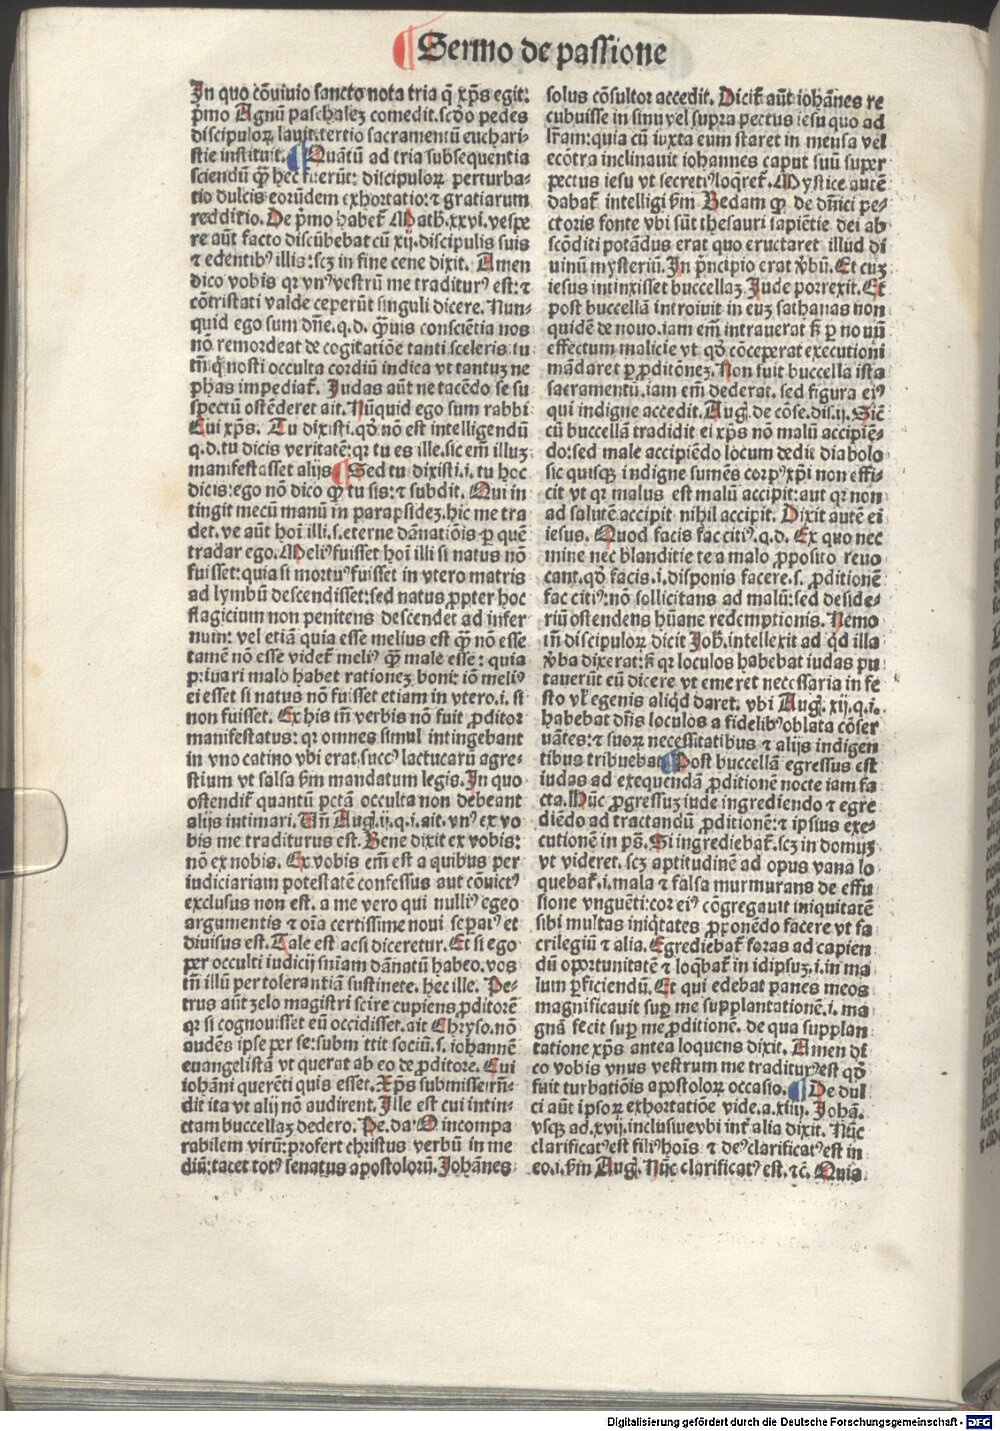 Sermo de passione
In quo cōuiuio sancto nota tria q̄ xp̄s egit:
p̄mo Agnū paschalez comedit. scd̄o pedes
discipuloꝝ lauit. tertio sacramentū euchari-
stie instituit. ¶ Quātū ad tria subsequentia
sciendū qꝫ hec fuerūt: discipuloꝝ perturba-
tio dulcis eorūdem exhortatio: ⁊ gratiarum
redditio. De p̄mo habet̄ Math. xxvi. vespe
re aūt facto discūbebat cū xij. discipulis suis
⁊ edentibꝰ illis: scꝫ in fine cene dixit. Amen
dico vobis qꝛ vnꝰ vestrū me traditurꝰ est: ⁊
cōtristati valde ceperūt singuli dicere. Nun-
quid ego sum dn̄e. q. d. q̄uis consciētia nos
nō remordeat de cogitatiōe tanti sceleris tu
tn̄ q̄ nosti occulta cordiū indica vt tantuꝫ ne
phas impediat̄. Judas aūt ne tacēdo se su
spectū ostēderet ait. Nūquid ego sum rabbi
Cui xp̄s. Tu dixisti. qd̄ nō est intelligendū
q. d. tu dicis veritatē: qꝛ tu es ille. sic em̄ illuꝫ
manifestasset alijs ¶ Sed tu dixisti. i. tu hoc
dicis: ego nō dico qꝫ tu sis: ⁊ subdit. Qui in
tingit mecū manū in parapsideꝫ. hic me tra
det. ve aūt hoī illi. s. eterne dānatiōis ꝑ quē
tradar ego. Meliꝰ fuisset hoī illi si natus nō
fuisset: quia si mortuꝰ fuisset in vtero matris
ad lymbū descendisset: sed natus ꝓpter hoc
flagicium non penitens descendet ad infer
num: vel etiā quia esse melius est q̄ nō esse
tamē nō esse videt̄ meliꝰ q̄ male esse: quia
priuari malo habet rationeꝫ boni: iō meliꝰ
ei esset si natus nō fuisset etiam in vtero. i. si
non fuisset. Ex his tn̄ verbis nō fuit ꝓditor
manifestatus: qꝛ omnes simul intingebant
in vno catino vbi erat succꝰ lactucarū agre-
stium vt salsa ẜm mandatum legis. In quo
ostendit̄ quantū pctā occulta non debeant
alijs intimari. Vn̄ Aug. ij. q. i. ait. vnꝰ ex vo
bis me traditurus est. Bene dixit ex vobis:
nō ex nobis. Ex vobis em̄ est a quibus per
iudiciariam potestatē confessus aut cōuictꝰ
exclusus non est. a me vero qui nulliꝰ egeo
argumentis ⁊ oīa certissime noui sepatꝰ et
diuisus est. Tale est acsi diceretur. Et si ego
per occulti iudicij snīam dānatū habeo. vos
tn̄ illū per tolerantiā sustinete. hec ille. Pe-
trus aūt zelo magistri scire cupiens ꝓditorē
qꝛ si cognouisset eū occidisset. ait Chryso. nō
audēs ipse per se: subm ttit sociū. s. iohannē
euangelistā vt querat ab eo de ꝓditore. Cui
iohāni querēti quis esset. Xp̄s submisse rn̄-
dit ita vt alij nō audirent. Ille est cui intin-
ctam buccellaꝫ dedero. Pe. da. O incompa
rabilem virū: profert christus verbū in me
diū: tacet totꝰ senatus apostoloꝝ. Johānes
solus cōsultor accedit. Dicit̄ aūt iohānes re
cubuisse in sinu vel supra pectus iesu quo ad
lr̄am: quia cū iuxta eum staret in mensa vel
ecōtra inclinauit iohannes caput suū super
pectus iesu vt secretiꝰ loq̄ret̄. Mystice autē
dabat̄ intelligi ẜm Bedam qꝫ de dn̄ici pe-
ctoris fonte vbi sūt thesauri sapiētie dei ab
scōditi potādus erat quo eructaret illud di
uinū mysteriū. In p̄ncipio erat v̄bū. Et cuꝫ
iesus intinxisset buccellaꝫ. Jude porrexit. Et
post buccellā introiuit in euꝫ sathanas non
quidē de nouo. iam em̄ intrauerat sꝫ ꝑ nouū
effectum malicie vt qd̄ cōceperat executioni
mādaret ꝑ ꝓditōneꝫ. Non fuit buccella ista
sacramentū. iam em̄ dederat. sed figura eiꝰ
qui indigne accedit. Aug. de cōse. dis. ij. Sic
cū buccellā tradidit ei xp̄s nō malū accipiē-
do: sed male accipiēdo locum dedit diabolo
sic quisqꝫ indigne sumēs corpꝰ xp̄i non effi-
cit vt qꝛ malus est malū accipit: aut qꝛ non
ad salutē accipit nihil accipit. Dixit autē ei
iesus. Quod facis fac citiꝰ. q. d. Ex quo nec
mine nec blanditie te a malo ꝓposito reuo
cant. qd̄ facis. i. disponis facere. s. ꝓditionē
fac citiꝰ: nō sollicitans ad malū: sed deside-
riū ostendens hūane redemptionis. Nemo
tn̄ discipuloꝝ dicit Joh. intellexit ad qd̄ illa
v̄ba dixerat: sꝫ qꝛ loculos habebat iudas pu
tauerūt eū dicere vt emeret necessaria in fe
sto vl̓ egenis aliqd̄ daret. vbi Aug. xij. q. i.
habebat dn̄s loculos a fidelibꝰ oblata cōser
uātes: ⁊ suoꝝ necessitatibus ⁊ alijs indigen
tibus tribuebat ¶ Post buccellā egressus est
iudas ad exequendā ꝓditionē nocte iam fa
cta. Hūc ꝓgressuꝫ iude ingrediendo ⁊ egre
diēdo ad tractandū ꝓditionē: ⁊ ipsius exe-
cutionē in ps̄. Si ingrediebat̄. scꝫ in domuꝫ
vt videret. scꝫ aptitudinē ad opus vana lo
quebat̄. i. mala ⁊ falsa murmurans de effu
sione vnguēti: cor eiꝰ cōgregauit iniquitatē
sibi multas iniq̄tates ꝓponēdo facere vt sa
crilegiū ⁊ alia. Egrediebat̄ foras ad capien
dū oportunitatē ⁊ loq̄bat̄ in idipsuꝫ. i. in ma
lum ꝑficiendū. Et qui edebat panes meos
magnificauit suꝑ me supplantationē. i. ma
gnā fecit suꝑ me ꝓditionē. de qua supplan
tatione xp̄s antea loquens dixit. Amen di
co vobis vnus vestrum me traditurꝰ est qd̄
fuit turbatiōis apostoloꝝ occasio. ¶ De dul
ci aūt ipsoꝝ exhortatiōe vide. a. xiiij. Johā.
vsqꝫ ad. xvij. inclusiue vbi int̄ alia dixit. Nūc
clarificatꝰ est filiꝰ hoīs ⁊ deꝰ clarificatꝰ est in
eo. i. ẜm Aug. Nūc clarificatꝰ est. ⁊c̄. Quia
Digitalisierung gefördert durch die Deutsche Forschungsgemeinschaft - DFG